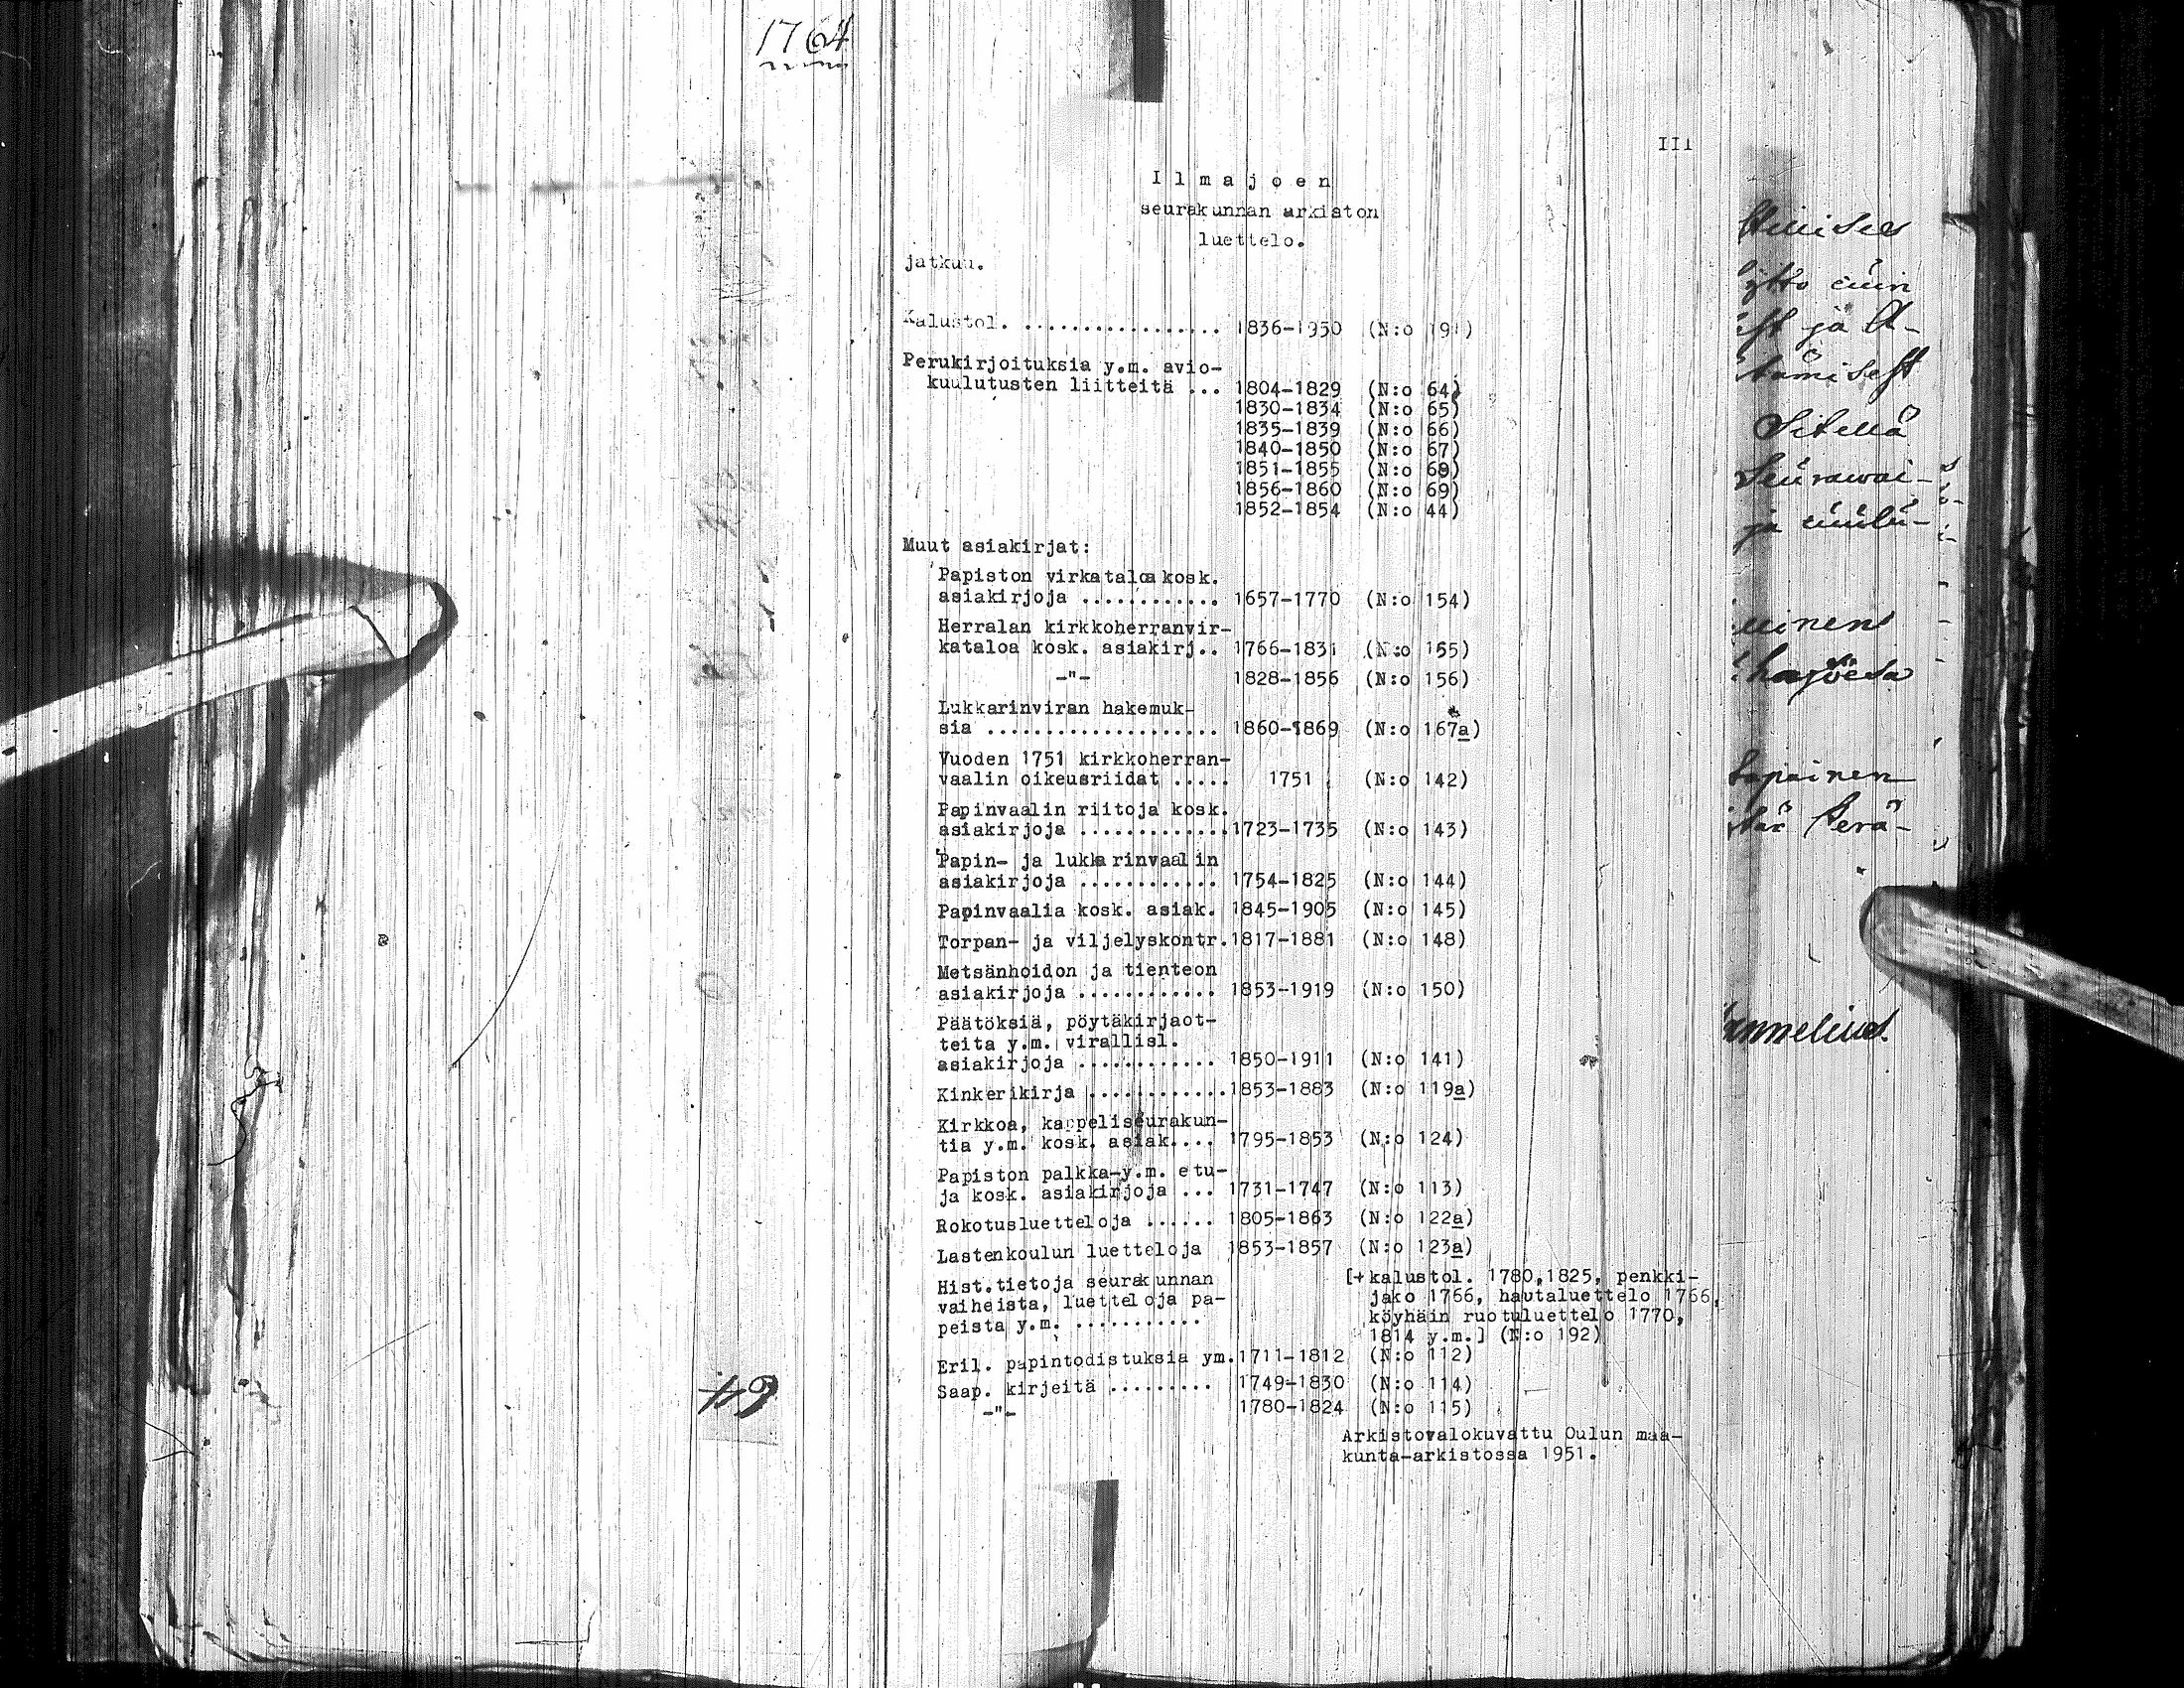 1764
III
Ilmajoen
seurakunnan arkiston
luettelo.
jatkuu.
Kalustol. .................. 1836-1950 (N:o 191)
Perukirjoituksia y.m. avio-
kuulutusten liitteitä ... 1804-1829 (N:o 64)
1830-1834 (N:o 65)
1835-1839 (N:o 66)
1840-1850 (N:o 67)
1851-1855 (N:o 68)
1856-1860 (N:o 69)
1852-1854 (N:o 44)
Muut asiakirjat:
Papiston virkataloa kosk.
asiakirjoja ............ 1657-1770 (N:o 154)
Herralan kirkkoherranvir-
kataloa kosk. asiakirj.. 1766-1831 (N:o 155)
-"- 1828-1856 (N:o 156)
Lukkarinviran hakemuk-
sia .................... 1860-1869 (N:o 167a)
Vuoden 1751 kirkkoherran-
vaalin oikeusriidat ..... 1751 (N:o 142)
Papinvaalin riitoja kosk.
asiakirjoja .............1723-1735 (N:o 143)
Papin- ja lukkarinvaalin
asiakirjoja ............ 1754-1825 (N:o 144)
Papinvaalia kosk. asiak. 1845-1905 (N:o 145)
Torpan- ja viljelyskontr.1817-1881 (N:o 148)
Metsänhoidon ja tienteon
asiakirjoja ............ 1853-1919 (N:o 150)
Päätöksiä, pöytäkirjaot-
teita y.m. virallisl.
asiakirjoja ............ 1850-1911 (N:o 141)
Kinkerikirja ............1853-1883 (N:o 119a)
Kirkkoa, kappeliseurakun-
tia y.m. kosk. asiak.... 1795-1853 (N:o 124)
Papiston palkka-y.m. etu-
ja kosk. asiakirjoja ... 1731-1747 (N:o 113)
Rokotusluetteloja ...... 1805-1863 (N:o 122a)
Lastenkoulun luetteloja 1853-1857 (N:o 123a)
Hist.tietoja seurakunnan [+kalustol. 1780,1825, penkki-
vaiheista, luetteloja pa- jako 1766, hautaluettelo 1766,
peista y.m. ........... köyhäin ruotuluettelo 1770,
1814 y.m.] (N:o 192)
Eril. papintodistuksia ym.1711-1812 (N:o 112)
Saap. kirjeitä ......... 1749-1830 (N:o 114)
-"- 1780-1824 (N:o 115)
Arkistovalokuvattu Oulun maa-
kunta-arkistossa 1951.
ja
Sitellä
Seurawai-
ja
Perä-